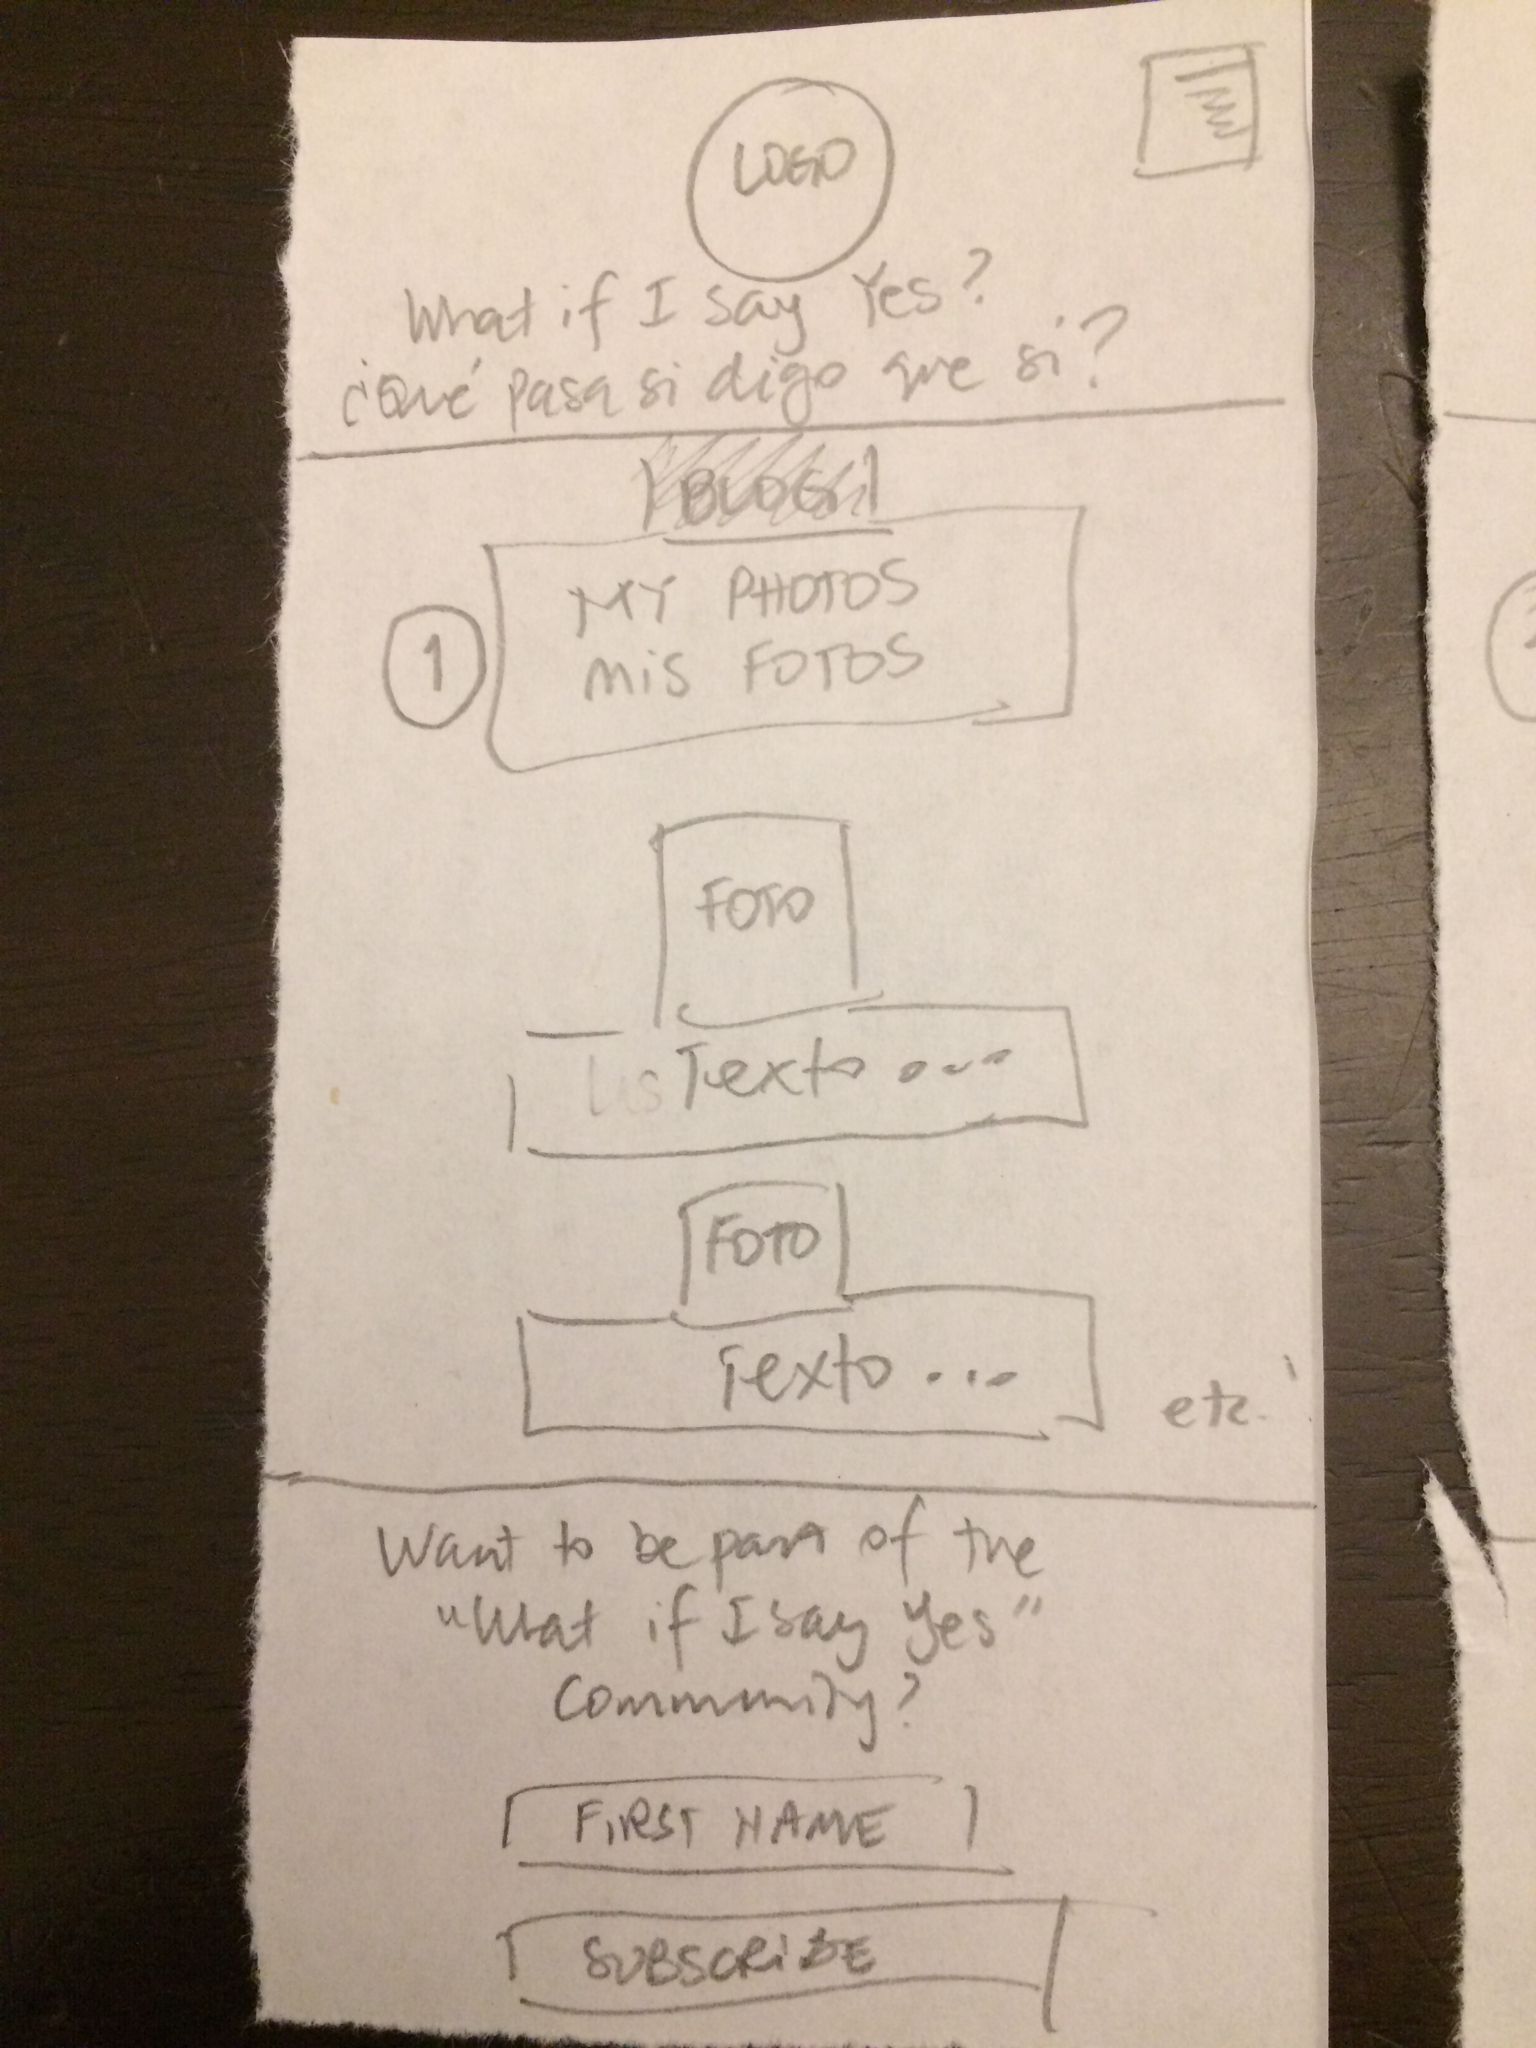 LOGO
What if I say Yes?
¿Qué pasa si digo que si?
BLOG
1
MY PHOTOS
MIS FOTOS
FOTO
Texto ...
FOTO
Texto ...
etc.
Want to be part of the
"What if I say Yes"
Community?
FIRST NAME
SUBSCRIBE